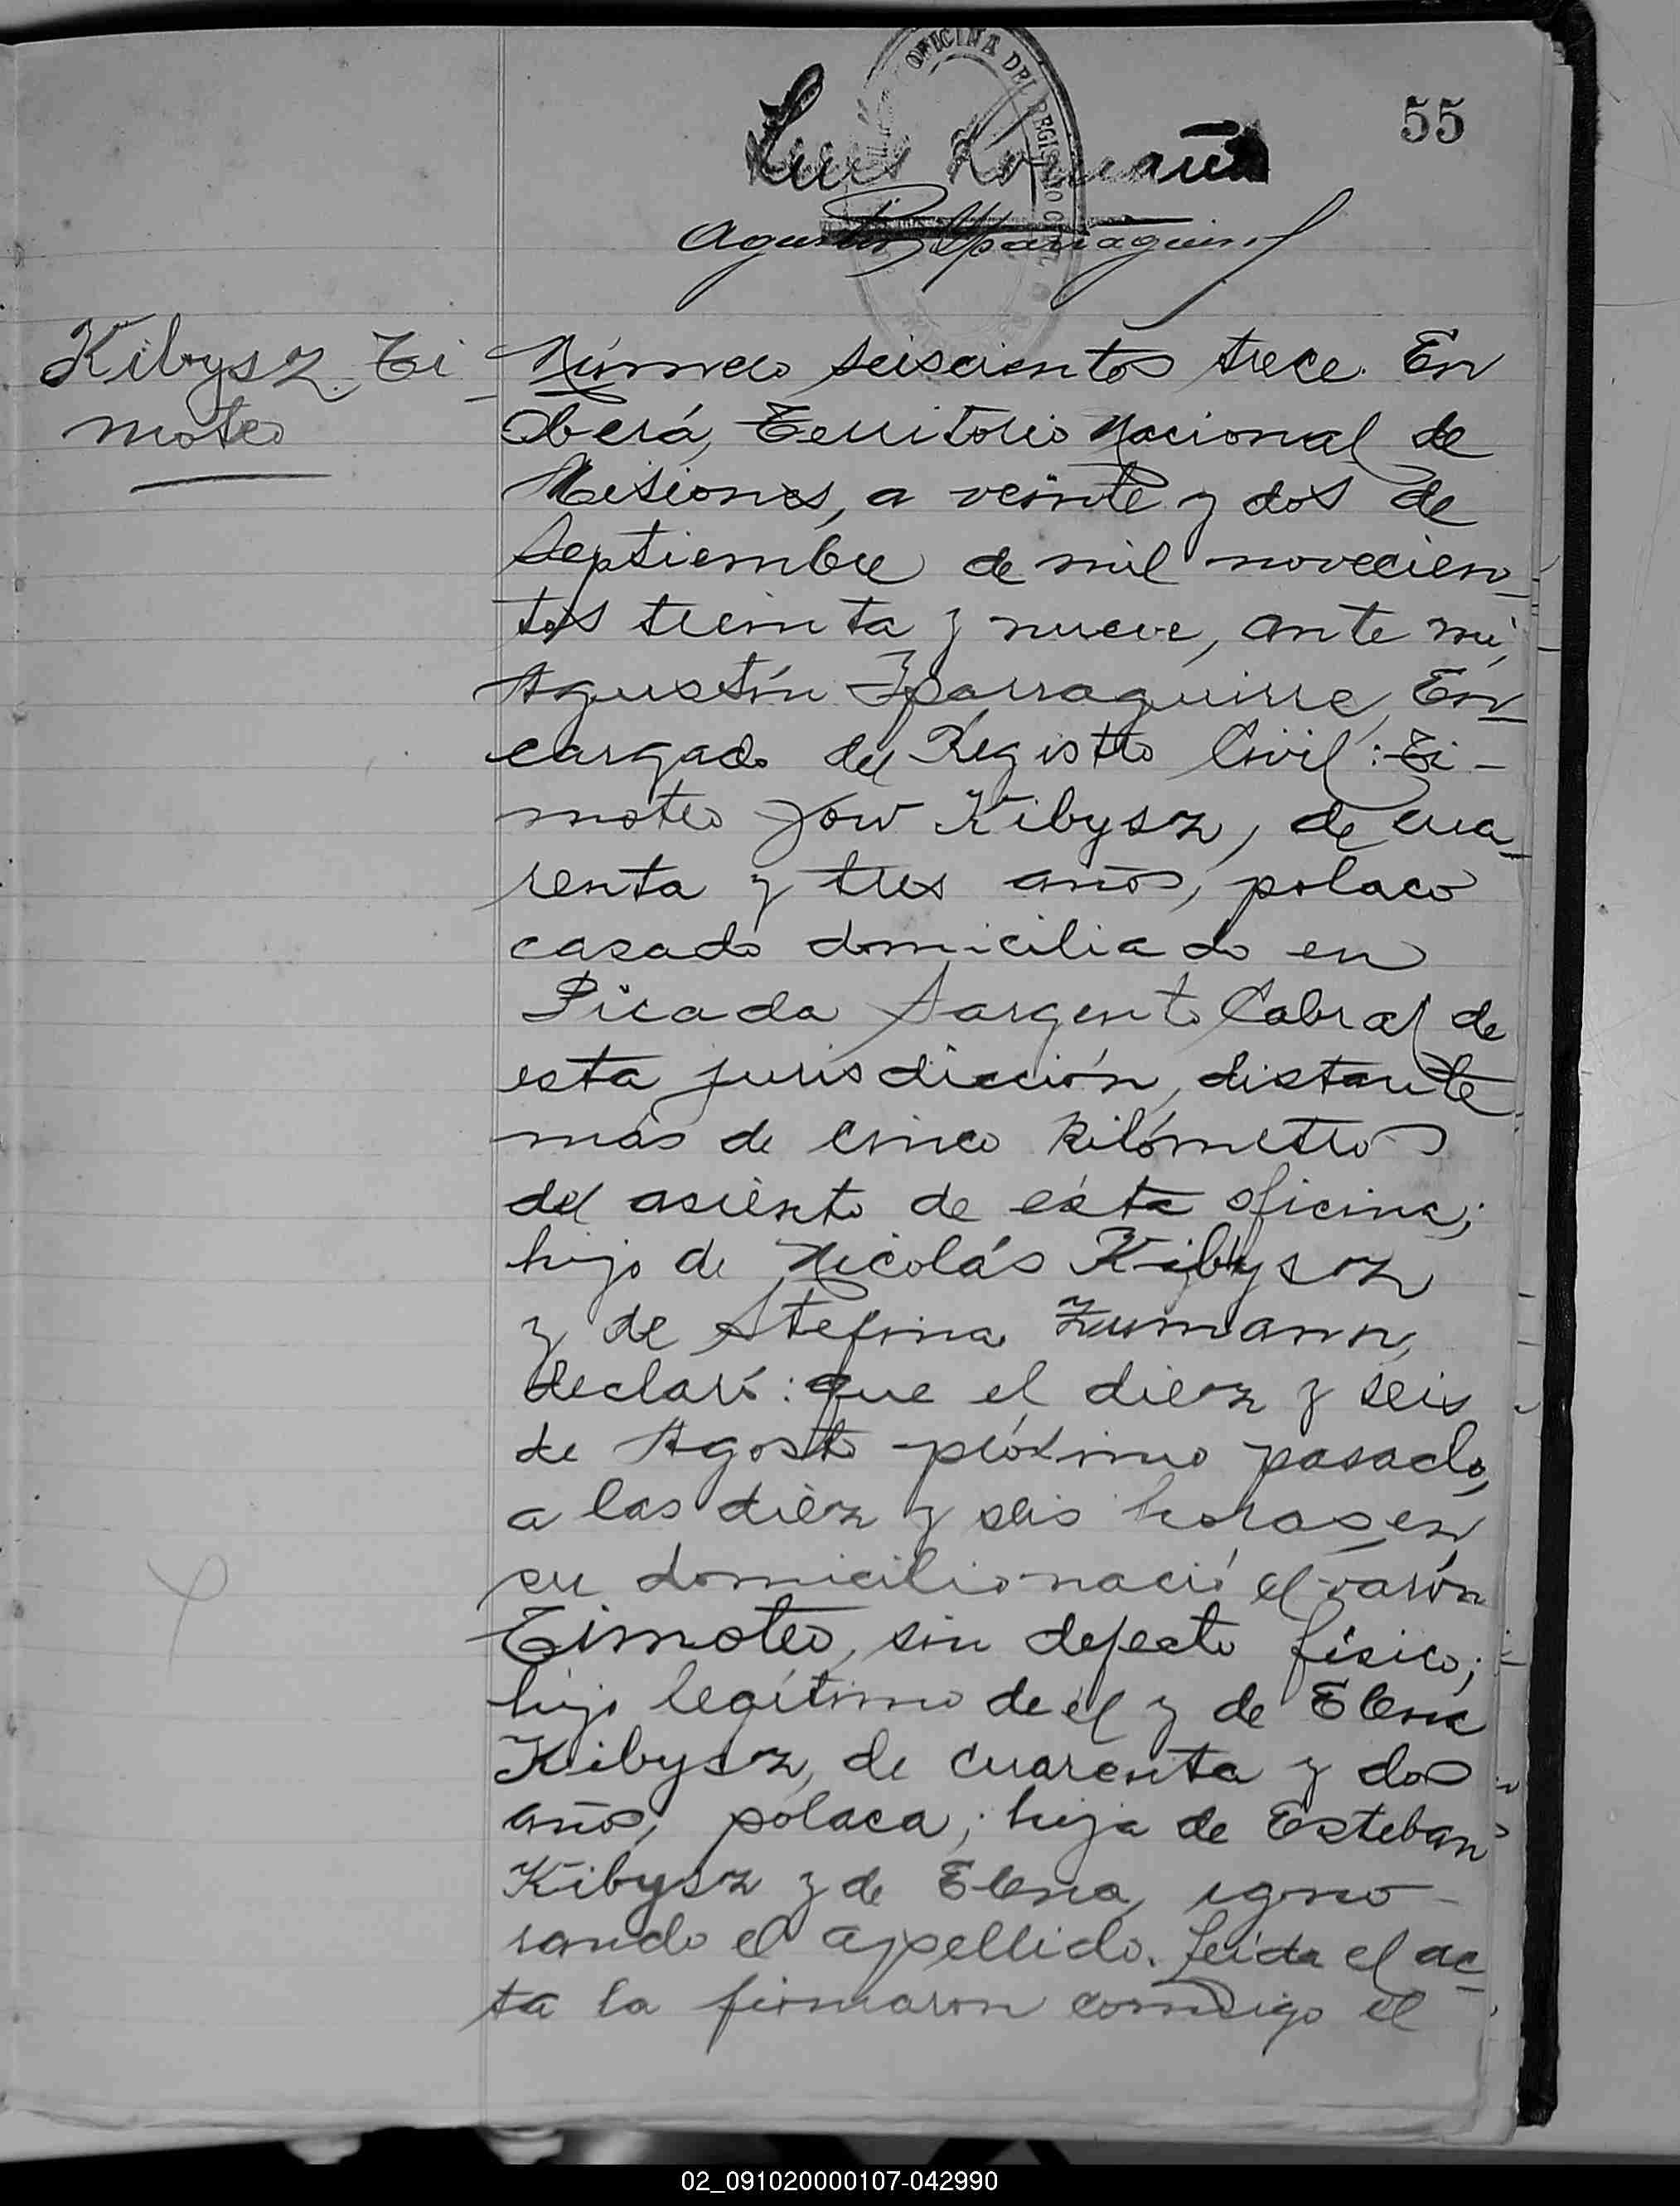 55
OFICINA DEL REGISTRO CIVIL
Luis
Agustín Yparraguirre
Kibysz, Ti
moteo
Número seiscientos trece. En
Oberá, Territorio Nacional de
Misiones, a veinte y dos de
Septiembre de mil novecien-
tos treinta y nueve, ante mí,
Agustín Yparraguirre, En-
cargado del Registro Civil: Ti-
moteo Jow Kibysz, de cua-
renta y tres años, polaco
casado domiciliado en
Picada Sargento Cabral de
esta jurisdicción, distante
más de cinco kilómetros
del asiento de ésta oficina;
hijo de Nicolás Kibysz
y de Stefina Zumann,
declaró: que el diez y seis
de Agosto próximo pasado,
a las diez y seis horas, en
su domicilio nació el varón
Timoteo, sin defecto físico;
hijo legítimo de él y de Elena
Kibysz, de cuarenta y dos
años, polaca; hija de Esteban
Kibysz y de Elena, igno-
rando el apellido. Leída el ac-
ta la firmaron conmigo el
02_091020000107-042990